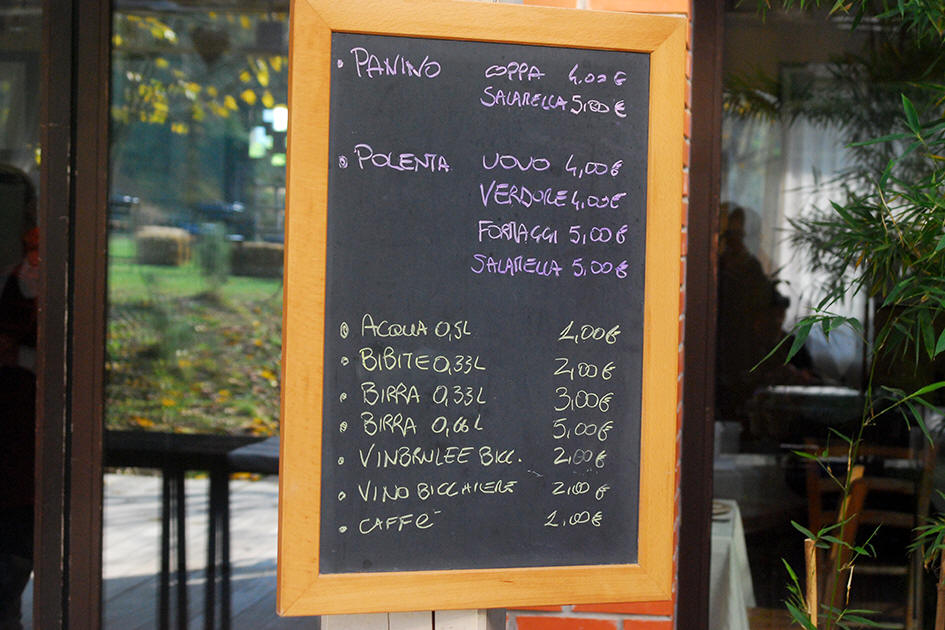 • PANINO COPPA 4,00€
SALAMELLA 5,00€
• POLENTA UOVO 4,00€
VERDURE 4,00€
FORMAGGI 5,00€
SALAMELLA 5,00€
• ACQUA 0,5L 1,00€
• BIBITE 0,33L 2,00€
• BIRRA 0,33L 3,00€
• BIRRA 0,66L 5,00€
• VINBRULEE BICC. 2,00€
• VINO BICCHIERE 2,00€
• CAFFè 1,00€